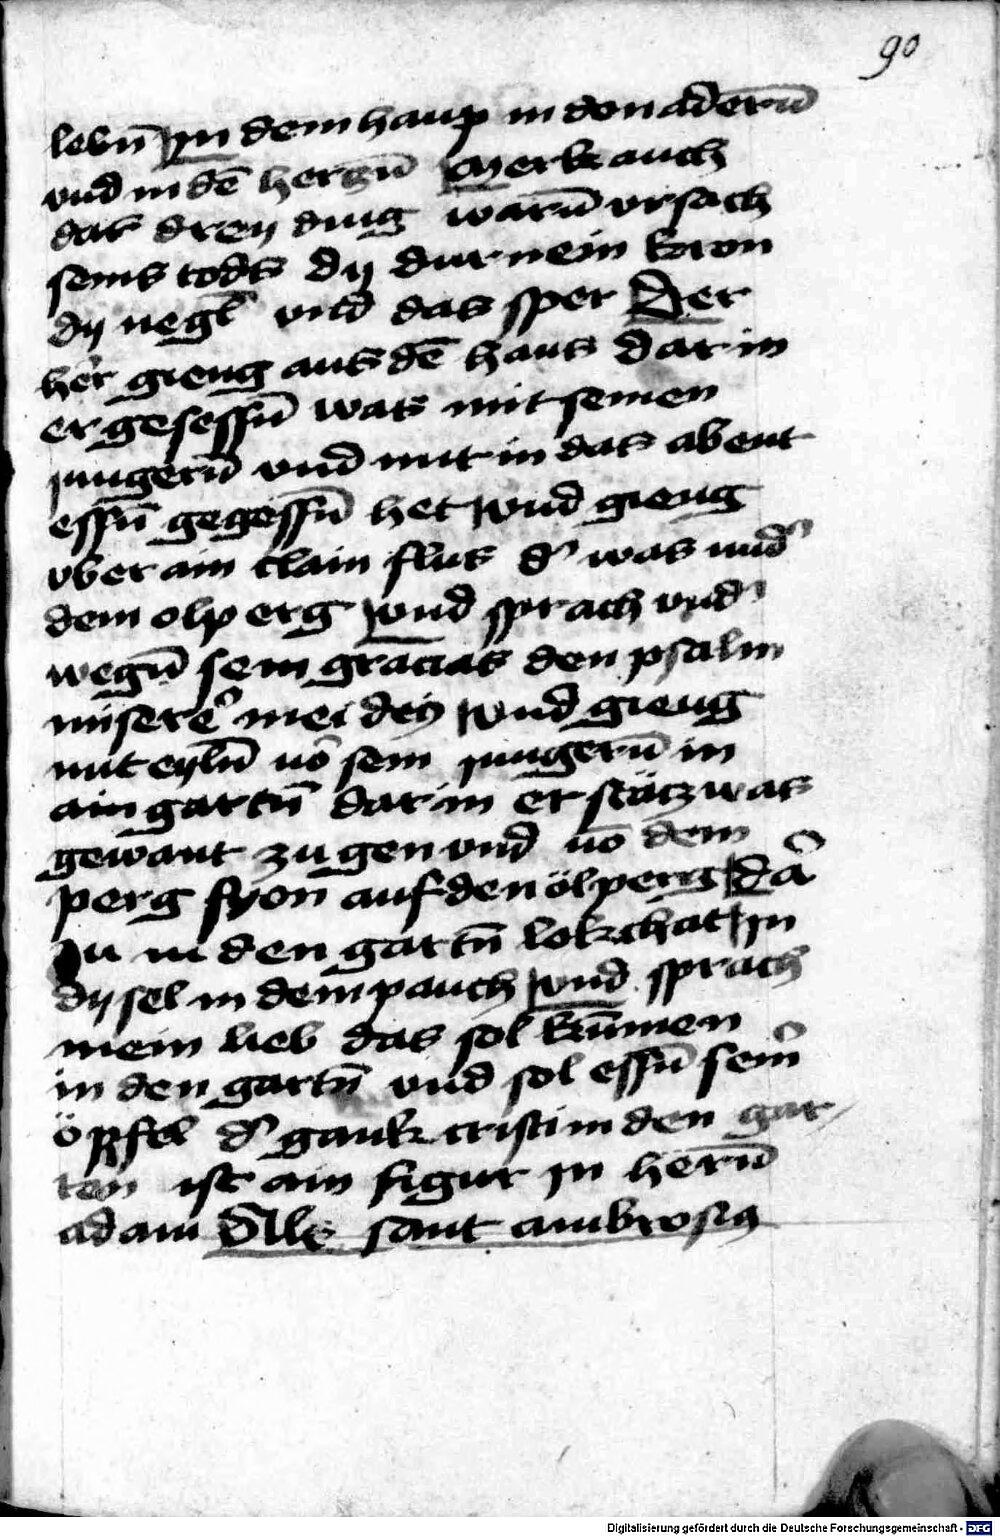 90
lebn̄ Jn dem haup in den aderñ
vnd in dē herczn̄ Merk auch
das dreӱ ding warn̄ vrsach
seins tods dӱ durnein kron
dӱ negl vnd das sper Der
her gieng aus dē haus dar in
er gesessn̄ was mit seinen
jungern̄ vnd mit in das abent
essn̄ gegessn̄ het vnd gieng
vber ain clain flus d' was vnd'
dem olperg vnd sprach vnd'
wegn̄ sein gracias den psalm
misere' mei deӱ vnd gieng
mit eyln̄ vō sein jungern̄ in
ain gartn̄ dar in er stäcz was
gewant zu gen vnd vō dem
perg syon auf den ölperg Da
in den gartn̄ lokchat in
dӱ sel in dem pauch vnd sprach
mein lieb das sol kūmen
in den gartn̄ vnd sol essn̄ sein
öpfel d' gank cristi in den gar
ten ist ain figur in herñ
adam Als sant ambrosiꝰ
Digitalisierung gefördert durch die Deutsche Forschungsgemeinschaft - DFG